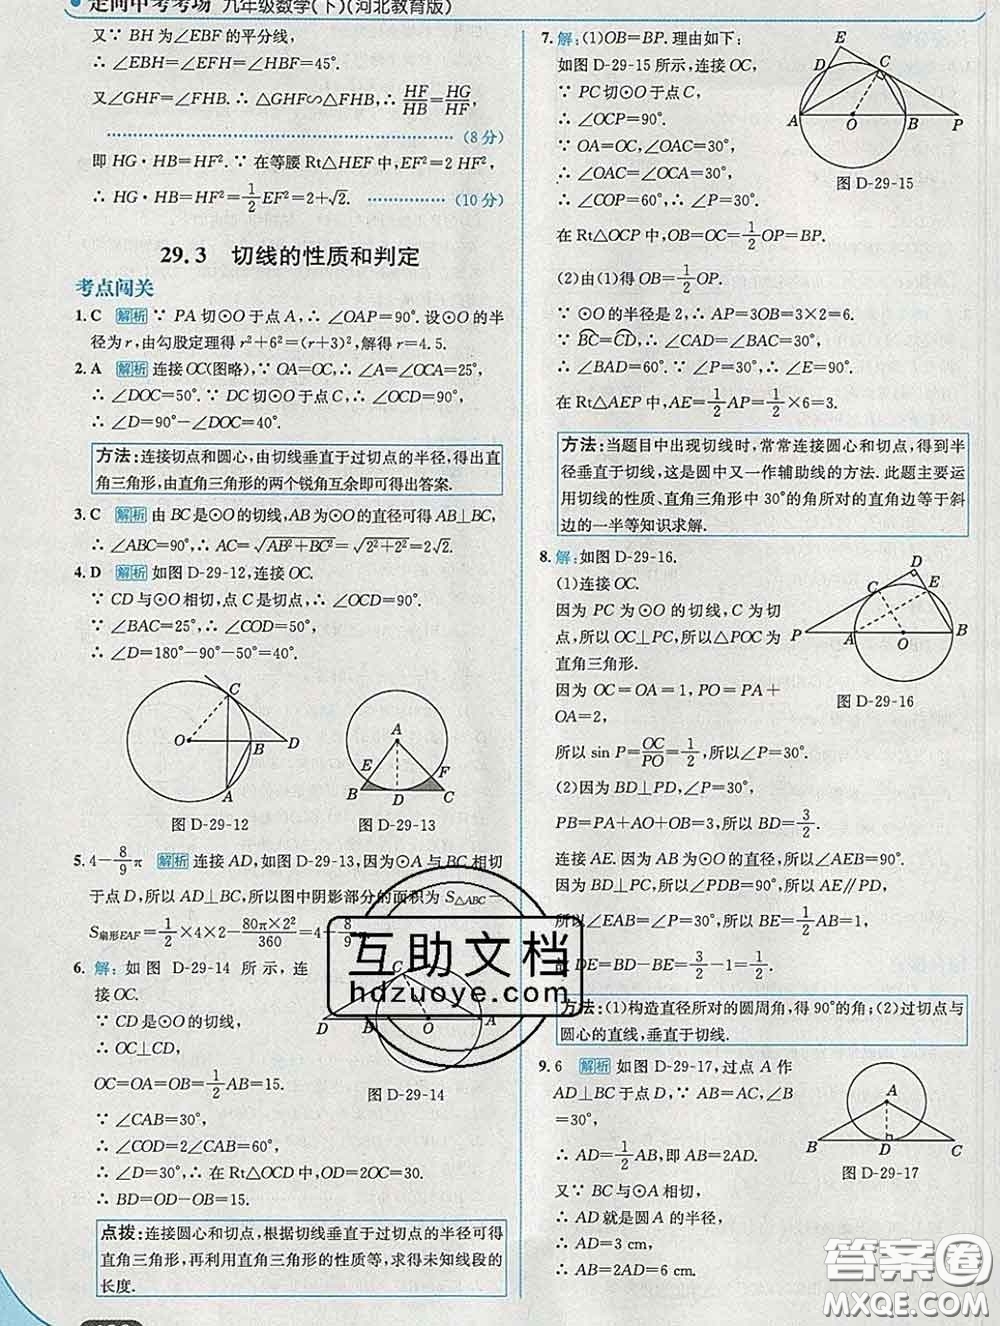 走向中考考场 九年级数学(下)(河北教育版)
又∵ BH为∠EBF的平分线,
∴ ∠EBH=∠EFH=∠HBF=45°.
又∠GHF=∠FHB.∴ △GHF∽△FHB,∴ HF/HB=HG/HF,
(8分)
即 HG·HB=HF².∵ 在等腰 Rt△HEF中,EF²=2HF²,
∴ HG·HB=HF²=1/2EF²=2+√2. (10分)
29.3 切线的性质和判定
考点闯关
1.C 解析 ∵ PA切⊙O于点A,∴ ∠OAP=90°.设⊙O的半
径为r,由勾股定理得 r²+6²=(r+3)²,解得r=4.5.
2.A 解析 连接OC(图略),∵ OA=OC,∴ ∠A=∠OCA=25°,
∴ ∠DOC=50°.∵ DC切⊙O于点C,∴ ∠OCD=90°,
∴ ∠D=90°-∠DOC=40°.
方法:连接切点和圆心,由切线垂直于过切点的半径,得出直
角三角形,由直角三角形的两个锐角互余即可得出答案.
3.C 解析 由BC是⊙O的切线,AB为⊙O的直径可得AB⊥BC,
∴ ∠ABC=90°,∴ AC=√(AB²+BC²)=√(2²+2²)=2√2.
4.D 解析 如图 D-29-12,连接OC.
∵ CD与⊙O相切,点C是切点,∴ ∠OCD=90°.
∵ ∠BAC=25°,∴ ∠COD=50°,
∴ ∠D=180°-90°-50°=40°.
O
C
B
D
A
图 D-29-12
A
E
F
B
D
C
图 D-29-13
5.4-8/9π 解析 连接AD,如图D-29-13,因为⊙A与BC相切
于点D,所以AD⊥BC,所以图中阴影部分的面积为 S△ABC-
S扇形EAF=1/2×4×2-80π×2²/360=4-8/9
6.解:如图 D-29-14 所示,连
接OC.
∵ CD是⊙O的切线,
∴ OC⊥CD,
OC=OA=OB=1/2AB=15.
∵ ∠CAB=30°,
∴ ∠COD=2∠CAB=60°,
∴ ∠D=30°,∴ 在 Rt△OCD中,OD=2OC=30.
∴ BD=OD-OB=15.
C
D
B
O
A
图 D-29-14
点拨:连接圆心和切点,根据切线垂直于过切点的半径可得
直角三角形,再利用直角三角形的性质等,求得未知线段的
长度.
7.解:(1)OB=BP.理由如下:
如图 D-29-15 所示,连接OC,
∵ PC切⊙O于点C,
∴ ∠OCP=90°.
∵ OA=OC,∠OAC=30°,
∴ ∠OAC=∠OCA=30°,
∴ ∠COP=60°,∴ ∠P=30°.
在 Rt△OCP中,OB=OC=1/2OP=BP.
(2)由(1)得OB=1/2OP.
∵ ⊙O的半径是2,∴ AP=3OB=3×2=6.
∵ BC=CD,∴ ∠CAD=∠BAC=30°,
∴ ∠BAD=60°.∵ ∠P=30°,∴ ∠E=90°.
在 Rt△AEP中,AE=1/2AP=1/2×6=3.
E
D
C
A
O
B
P
图 D-29-15
方法:当题目中出现切线时,常常连接圆心和切点,得到半
径垂直于切线,这是圆中又一作辅助线的方法.此题主要运
用切线的性质、直角三角形中30°的角所对的直角边等于斜
边的一半等知识求解.
8.解:如图 D-29-16.
(1)连接OC.
因为 PC 为⊙O的切线,C为切
点,所以OC⊥PC,所以△POC为
直角三角形.
因为 OC=OA=1,PO=PA+
OA=2,
所以sin P=OC/PO=1/2,所以∠P=30°.
(2)因为 BD⊥PD,∠P=30°,
PB=PA+AO+OB=3,所以 BD=3/2.
连接AE.因为AB为直径,所以∠AEB=90°.
又因为BD⊥PD,所以∠D=90°,所以AE∥PD,
所以∠EAB=∠P=30°,所以 BE=1/2AB=1,
故 DE=BD-BE=3/2-1=1/2.
D
C
E
P
A
O
B
图 D-29-16
方法:(1)构造直径所对的圆周角,得90°的角;(2)过切点与
圆心的直线,垂直于切线.
9.6 解析 如图 D-29-17,过点 A 作
AD⊥BC于点D,∵ AB=AC,∠B
=30°,
∴ AD=1/2AB,即AB=2AD.
又∵ BC与⊙A相切,
∴ AD就是圆A的半径,
∴ AD=3 cm,
∴ AB=2AD=6 cm.
A
B
D
C
图 D-29-17
互助文档
hdzuoye.com
答案圈
MXQE.COM